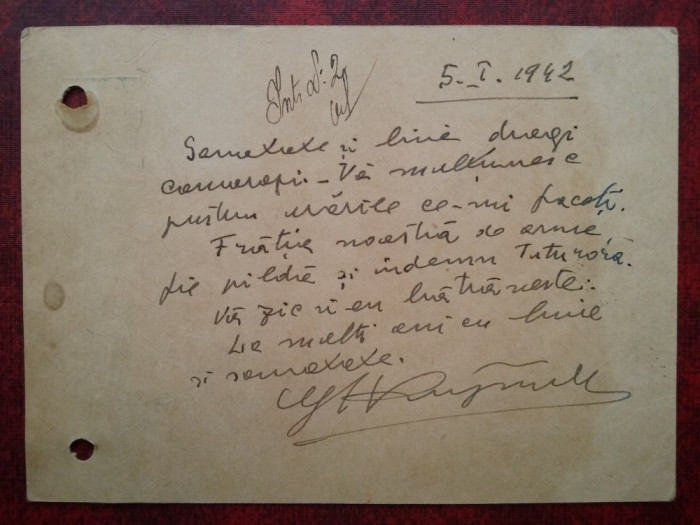 5. I. 1942
Sanatate și bine dragi
camarazi - Vă mulțumesc
pentru urările ce-mi faceți.
Frăția noastră de arme
fie pildă și indemn tuturora.
Vă zic și eu bătrânește:
La mulți ani cu bine
si sanatate.